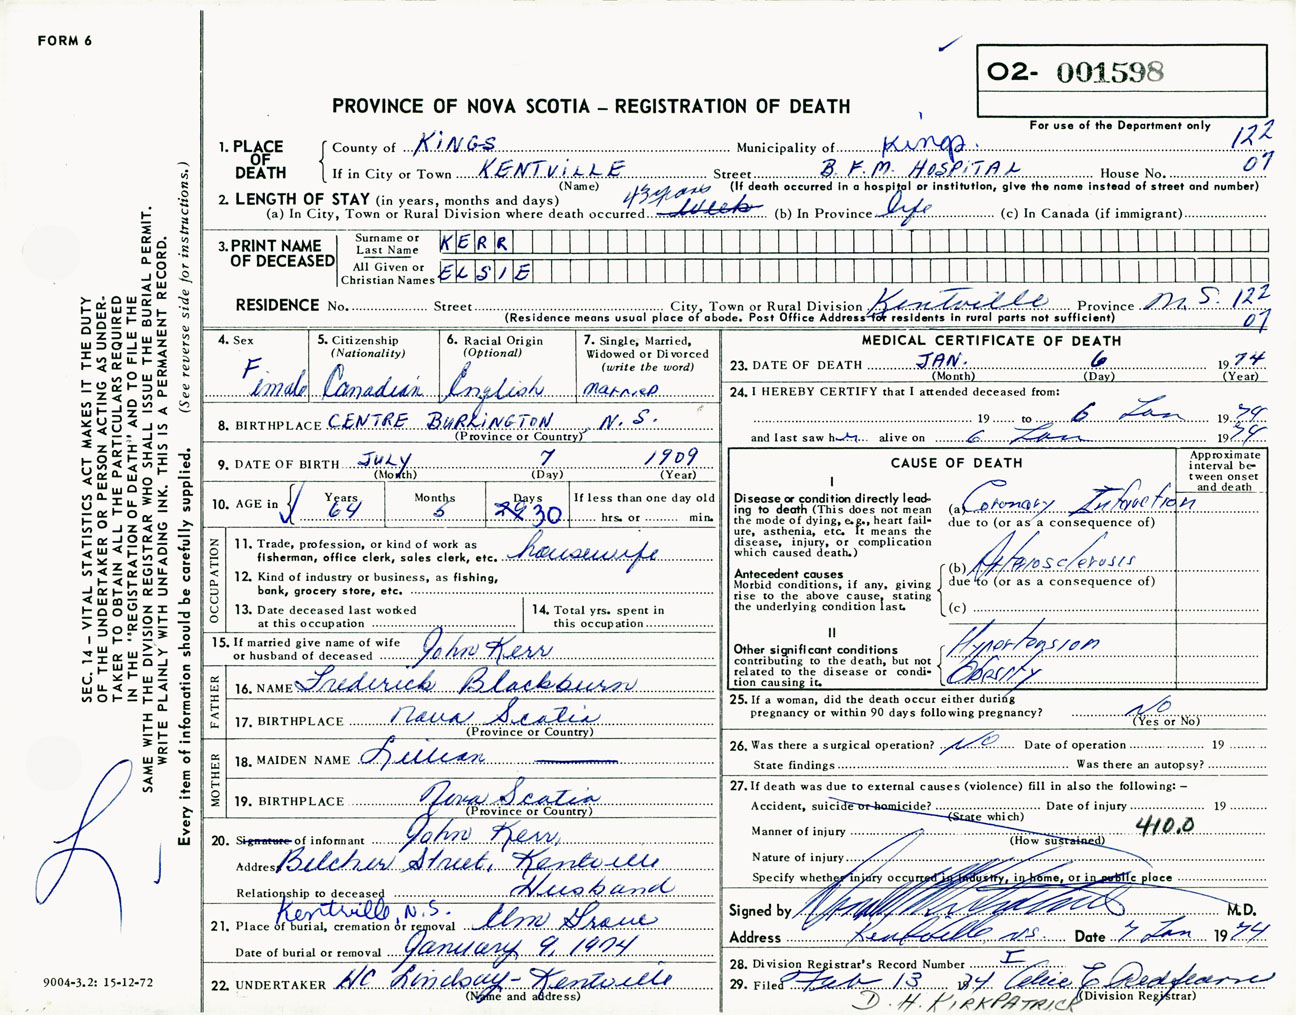 FORM 6
O2- 001598
PROVINCE OF NOVA SCOTIA – REGISTRATION OF DEATH
For use of the Department only
122
07
1. PLACE OF DEATH
County of KINGS Municipality of Kings.
If in City or Town KENTVILLE Street B. F. M. HOSPITAL House No.
(Name) (If death occurred in a hospital or institution, give the name instead of street and number)
2. LENGTH OF STAY (in years, months and days)
(a) In City, Town or Rural Division where death occurred 43 years (b) In Province life (c) In Canada (if immigrant)
3. PRINT NAME OF DECEASED
Surname or Last Name KERR
All Given or Christian Names ELSIE
RESIDENCE No. Street City, Town or Rural Division Kentville Province N. S. 122
(Residence means usual place of abode. Post Office Address for residents in rural parts not sufficient) 07
4. Sex Female
5. Citizenship (Nationality) Canadian
6. Racial Origin (Optional) English
7. Single, Married, Widowed or Divorced (write the word) MARRIED
8. BIRTHPLACE CENTRE BURLINGTON, N. S.
(Province or Country)
9. DATE OF BIRTH JULY 7 1909
(Month) (Day) (Year)
10. AGE in Years 64 Months 5 Days 29 30 If less than one day old hrs. or min.
OCCUPATION
11. Trade, profession, or kind of work as fisherman, office clerk, sales clerk, etc. housewife
12. Kind of industry or business, as fishing, bank, grocery store, etc.
13. Date deceased last worked at this occupation
14. Total yrs. spent in this occupation
15. If married give name of wife or husband of deceased John Kerr
FATHER
16. NAME Frederick Blackburn
17. BIRTHPLACE Nova Scotia
(Province or Country)
MOTHER
18. MAIDEN NAME Lillian
19. BIRTHPLACE Nova Scotia
(Province or Country)
20. Signature of informant John Kerr,
Address Belcher Street, Kentville
Relationship to deceased Husband
Kentville, N.S.
21. Place of burial, cremation or removal Elm Grove
Date of burial or removal January 9, 1974
22. UNDERTAKER HC Lindsay - Kentville
(Name and address)
MEDICAL CERTIFICATE OF DEATH
23. DATE OF DEATH JAN. 6 1974
(Month) (Day) (Year)
24. I HEREBY CERTIFY that I attended deceased from:
19 to 6 Jan 1974
and last saw her alive on 6 Jan 1974
CAUSE OF DEATH
Approximate interval between onset and death
I
Disease or condition directly leading to death (This does not mean the mode of dying, e.g., heart failure, asthenia, etc. It means the disease, injury, or complication which caused death.)
(a) Coronary Infarction
due to (or as a consequence of)
Antecedent causes
Morbid conditions, if any, giving rise to the above cause, stating the underlying condition last.
(b) Arteriosclerosis
due to (or as a consequence of)
(c)
II
Other significant conditions contributing to the death, but not related to the disease or condition causing it.
Hypertension
Obesity
25. If a woman, did the death occur either during pregnancy or within 90 days following pregnancy? NO
(Yes or No)
26. Was there a surgical operation? NO Date of operation 19
State findings Was there an autopsy?
27. If death was due to external causes (violence) fill in also the following: –
Accident, suicide or homicide? Date of injury 19
(State which)
Manner of injury 410.0
(How sustained)
Nature of injury
Specify whether injury occurred in industry, in home, or in public place
Signed by M.D.
Address Kentville N.S. Date 7 Jan 1974
28. Division Registrar's Record Number I
29. Filed Feb 13 1974
(Division Registrar)
D. H. KIRKPATRICK
SEC. 14 – VITAL STATISTICS ACT MAKES IT THE DUTY
OF THE UNDERTAKER OR PERSON ACTING AS UNDER-
TAKER TO OBTAIN ALL THE PARTICULARS REQUIRED
IN THE "REGISTRATION OF DEATH" AND TO FILE THE
SAME WITH THE DIVISION REGISTRAR WHO SHALL ISSUE THE BURIAL PERMIT.
WRITE PLAINLY WITH UNFADING INK. THIS IS A PERMANENT RECORD.
Every item of information should be carefully supplied. (See reverse side for instructions.)
9004-3.2: 15-12-72